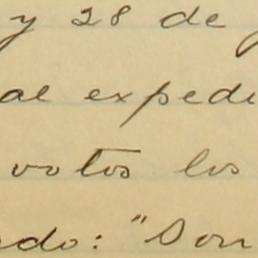 y 28 de
al expedi
votos los
do: "Son